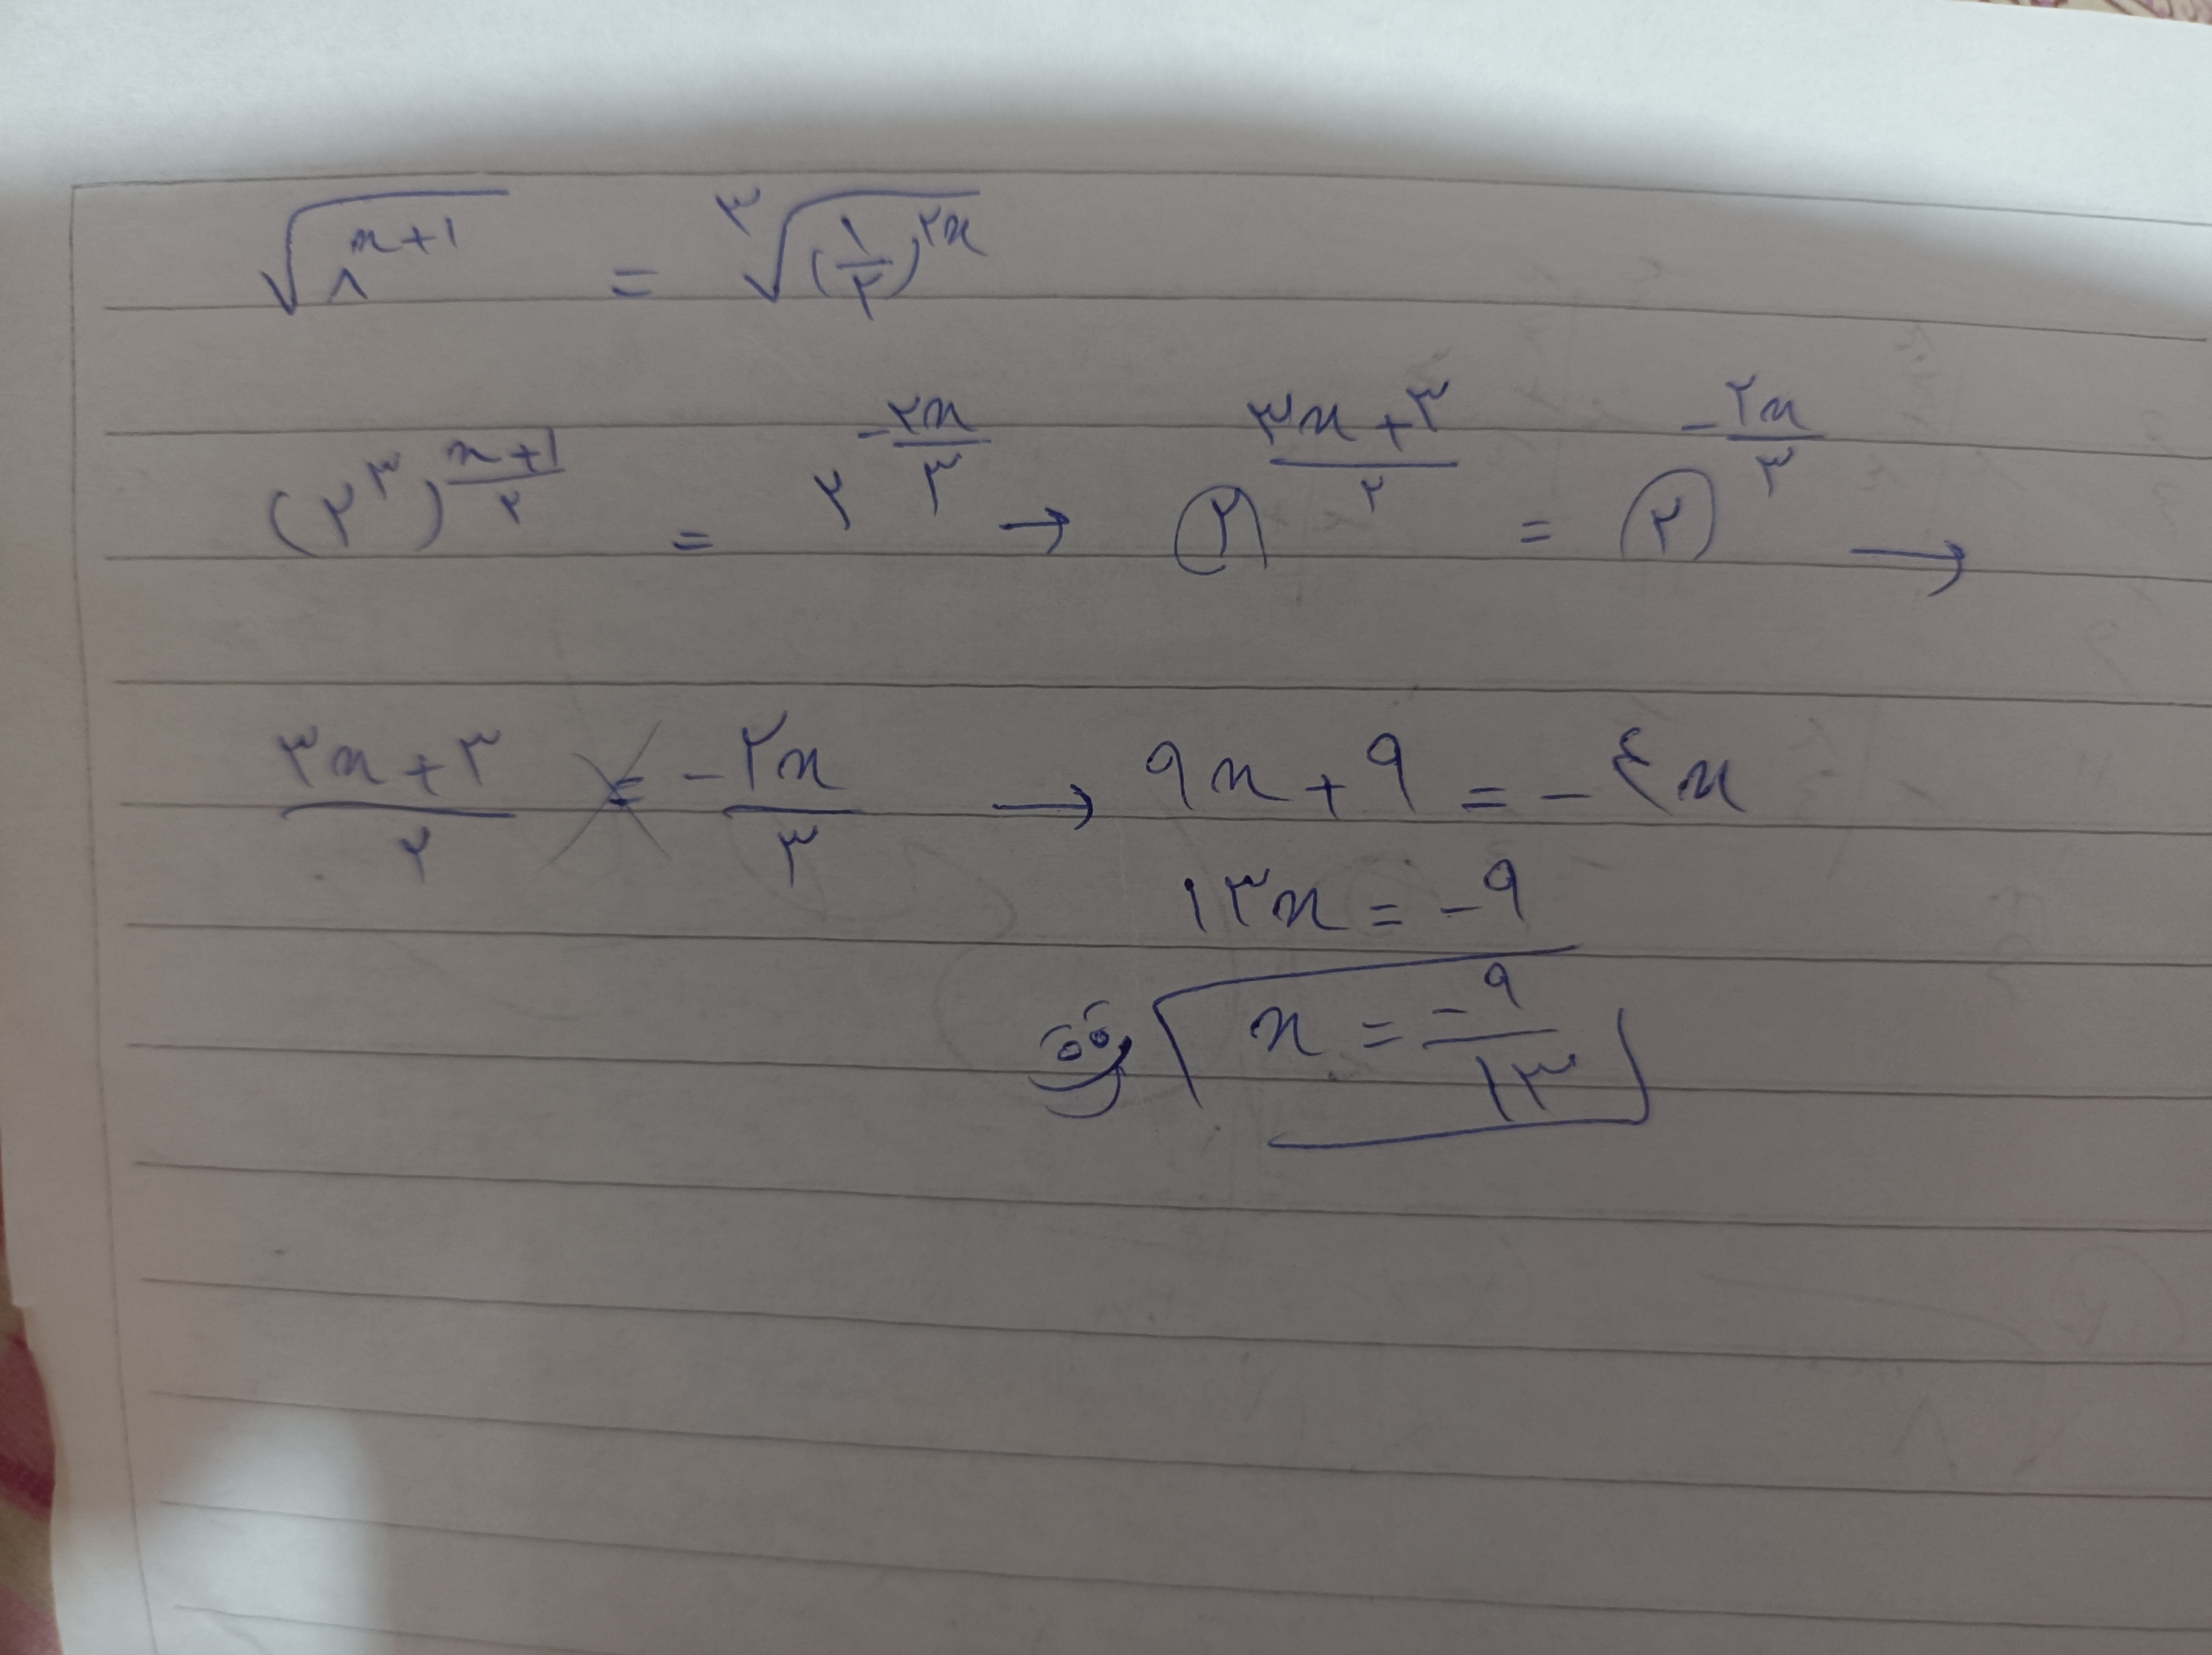 √(۸^(x+۱)) = ۳√((۱/۲)^(۲x))
(۲^۳)^((x+۱)/۲) = ۲^(-۲x/۳) → ۲^((۳x+۳)/۲) = ۲^(-۲x/۳) →
(۳x+۳)/۲ = -۲x/۳ → ۹x+۹ = -٤x
۱۳x = -۹
x = -۹/۱۳